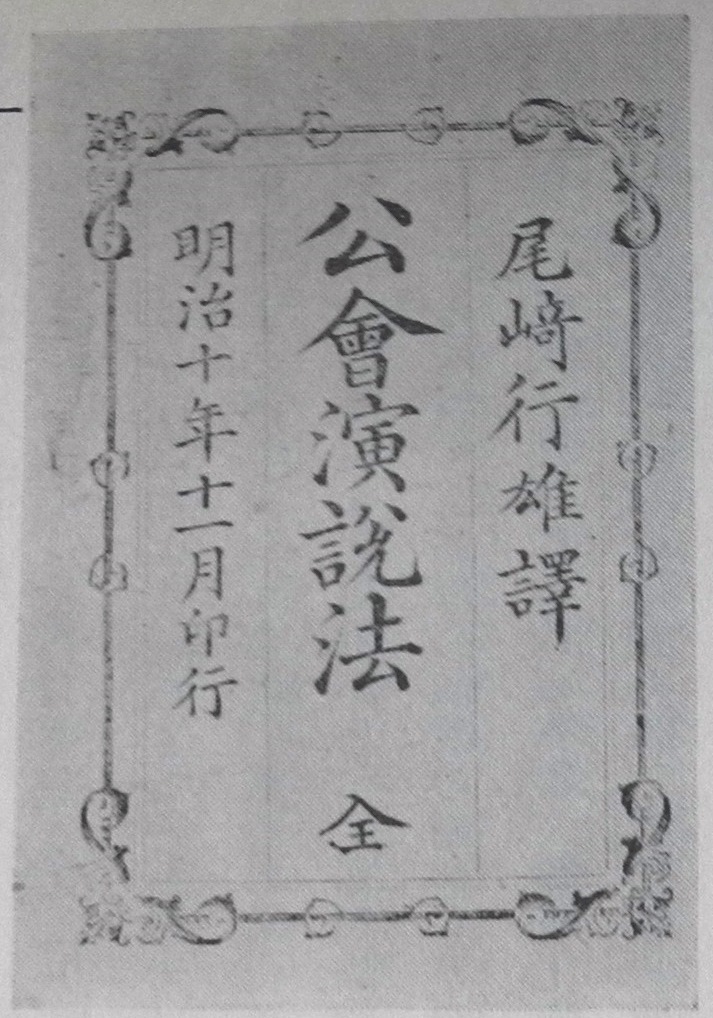 尾﨑行雄譯
公會演說法 全
明治十年十一月印行